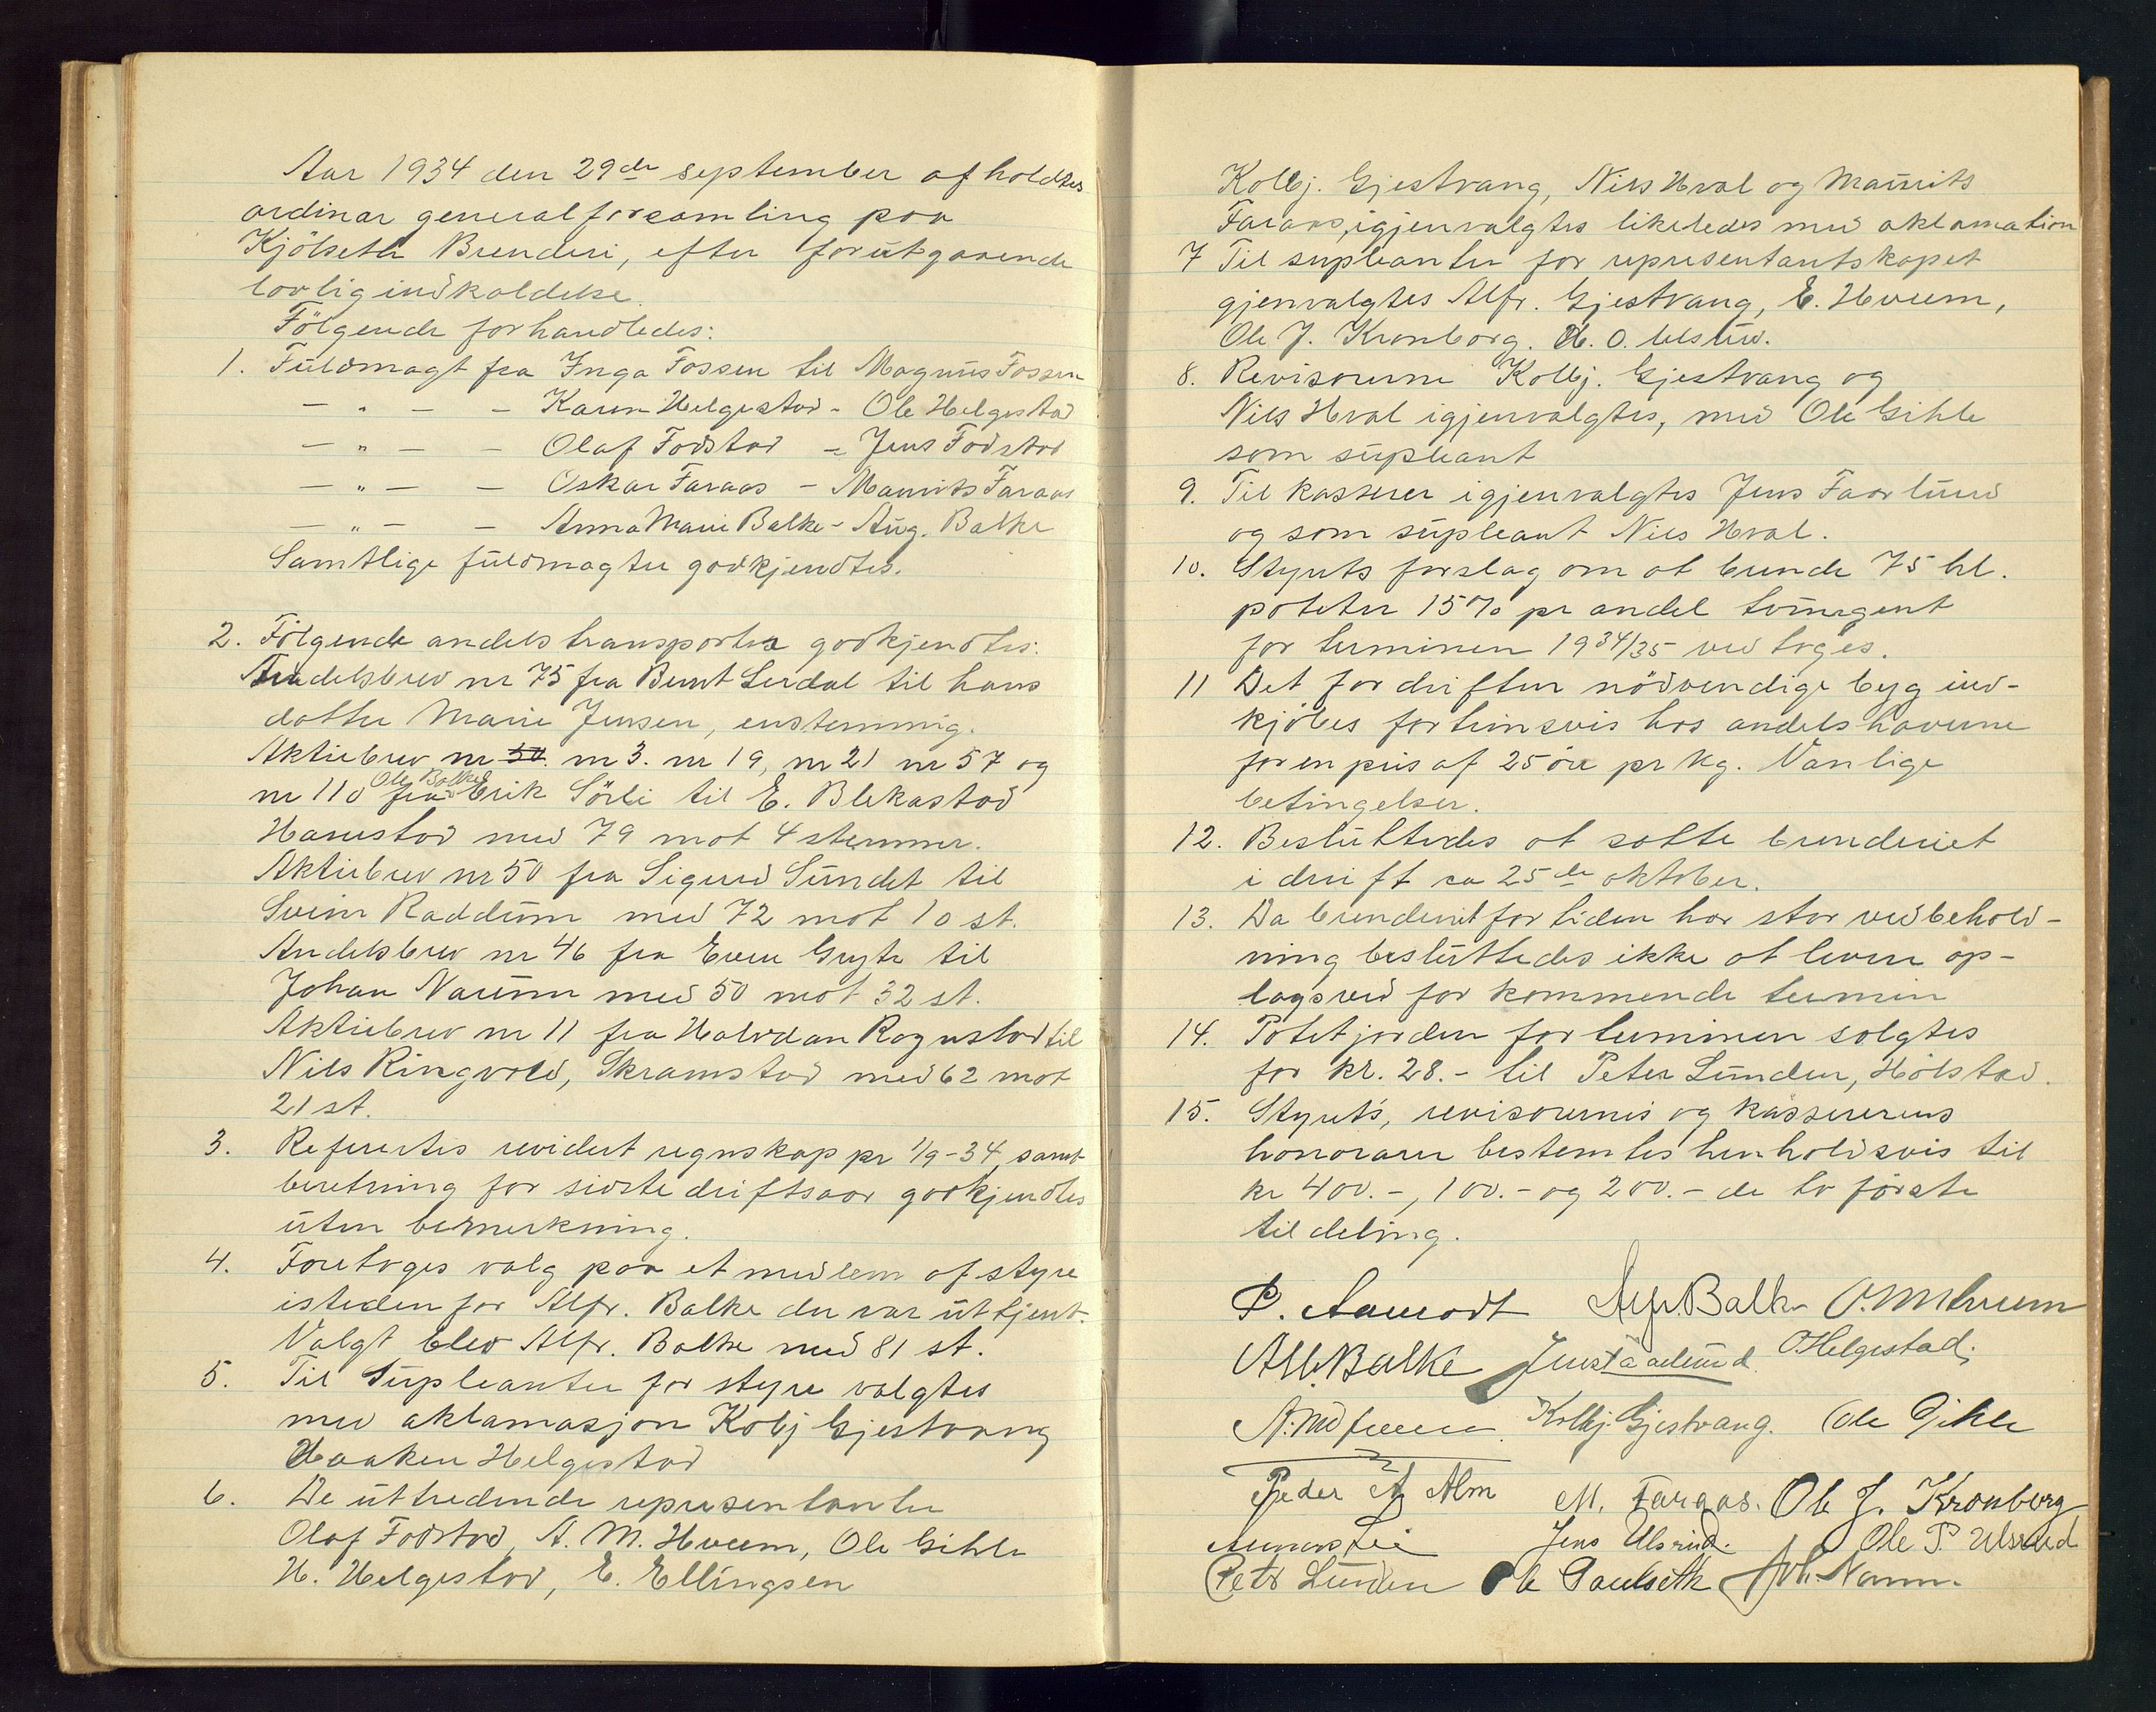 Aar 1934 den 29de september afholdtes
ordinær generalforsamling paa
Kjölseth Brenderi, efter forutgaaende
lovlig indkaldelse.
Følgende forhandledes:
1. Fuldmagt fra Inga Fossen til Magnus Fossen
— " — — Karen Helgestad - Ole Helgestad
— " — — Olaf Fodstad - Jens Fodstad
— " — — Oskar Faraas - Maurits Faraas
— " — — Anna Marie Balke - Aug. Balke
Samtlige fuldmagter godkjendtes.
2. Følgende andelstransporter godkjendtes:
Andelsbrev nr 75 fra Bernt Lerdal til hans
datter Marie Jensen, enstemmig.
Aktiebrev nr 50. nr 3. nr 19, nr 21 nr 57 og
Ole Balke
nr 110 fra Erik Sörli til E. Blekastad
Harestad med 79 mot 4 stemmer.
Aktiebrev nr 50 fra Sigurd Sundet til
Svein Raddum med 72 mot 10 st.
Andelsbrev nr 46 fra Even Gryte til
Johan Narum med 50 mot 32 st.
Aktiebrev nr 11 fra Halvdan Rognstad til
Nils Ringvold, Skramstad med 62 mot
21 st.
3. Refertes revidert regnskap pr 1/9-34, samt
beretning for sidste driftsaar godkjendtes
uten bemerkning.
4. Foretoges valg paa et medlem af styre
isteden for Alfr. Balke der var uttjent.
Valgt blev Alfr. Balke med 81 st.
5. Til Supleanter for styre valgtes
med aklamasjon Kolbj Gjestvang
Haaken Helgestad
6. De uttredende representanter
Olaf Fodstad, A. M. Hveem, Ole Gihle
H. Helgestad, E. Ellingsen
Kolbj. Gjestvang, Nils Hval og Maurits
Faraas, igjenvalgtes likeledes med aklamation
7 Til supleanter for representantskapet
gjenvalgtes Alfr. Gjestvang, E. Hveem,
Ole J. Kronborg. H. O. Ulsrud.
8. Revisorerne Kolbj. Gjestvang og
Nils Hval igjenvalgtes, med Ole Gihle
som supleant
9. Til kasserer igjenvalgtes Jens Faarlund
og som supleant Nils Hval.
10. Styrets forslag om at brende 75 hl.
poteter 15% pr andel tvungent
for terminen 1934/35 vedtoges.
11 Det for driften nödvendige byg ind-
kjöbes fortrinsvis hos andelshaverne
for en pris af 25 öre pr kg. Vanlige
betingelser.
12. Besluttedes at sætte brenderiet
i drift ca 25de oktober.
13. Da brenderiet for tiden har stor vedbehold-
ning besluttedes ikke at levere op-
lagsved for kommende termin
14. Potetjorden for terminen solgtes
for kr. 28.- til Peter Lunden, Hölstad.
15. Styrets, revisorernes og kassererens
honorarer bestemtes henholdsvis til
kr 400.-, 100.- og 200.- de to förste
til deling.
P. Aamodt Alfr Balke O. M Hveem
Alb Balke Jens Faarlund O Helgestad.
Kolbj. Gjestvang. Ole Gihle
Peder A Alm M. Faraas. Ole J. Kronborg
Jens Ulsrud. Ole P. Ulsrud
Petr Lunden Ole Paulseth Joh. Narum.